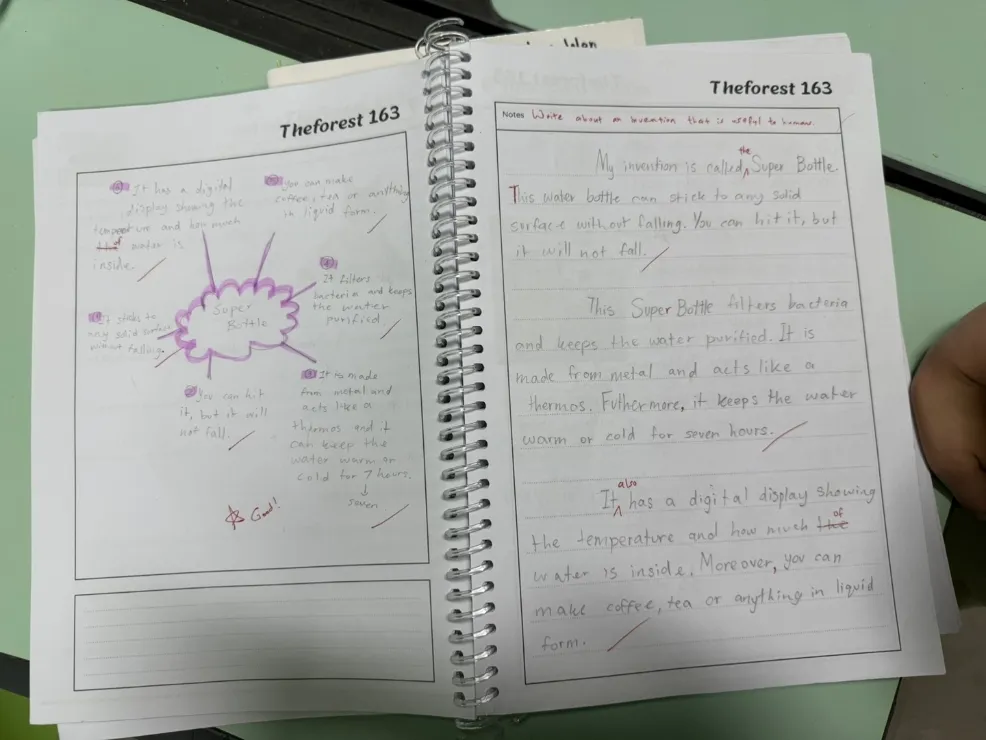 Theforest 163
It has a digital
display showing the
temperature and how much
the of water is
inside.
you can make
coffee, tea or anything
in liquid form.
It filters
bacteria and keeps
the water
purified.
Super
Bottle
It sticks to
any solid surface
without falling.
You can hit
it, but it will
not fall.
It is made
from metal and
acts like a
thermos and it
can keep the
water warm or
cold for 7 hours.
seven
Good!
Theforest 163
Notes Write about an invention that is useful to humans.
My invention is called the Super Bottle.
This water bottle can stick to any solid
surface without falling. You can hit it, but
it will not fall.
This Super Bottle filters bacteria
and keeps the water purified. It is
made from metal and acts like a
thermos. Futhermore, it keeps the water
warm or cold for seven hours.
It also has a digital display showing
the temperature and how much the of
water is inside. Moreover, you can
make coffee, tea or anything in liquid
form.